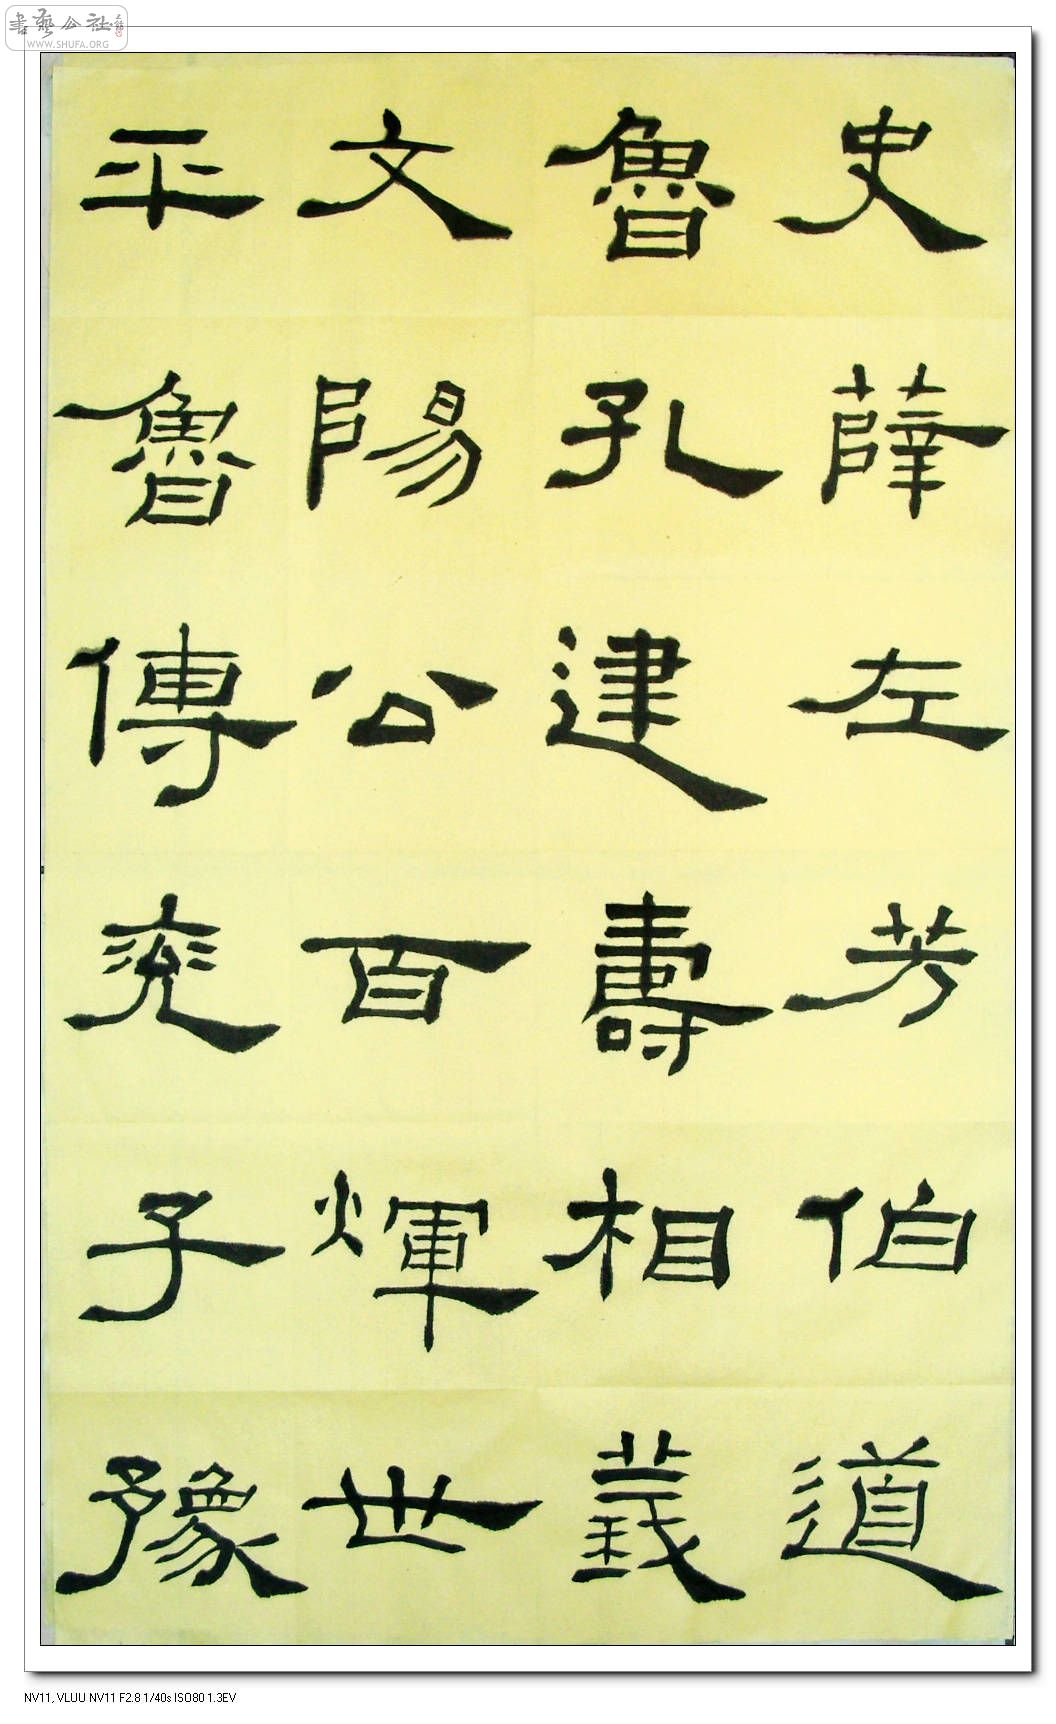 史薛左芳伯道
魯孔建壽相義
文陽公百煇世
平魯傳兗子豫
書藝公社
WWW.SHUFA.ORG
NV11, VLUU NV11 F2.8 1/40s ISO80 1.3EV